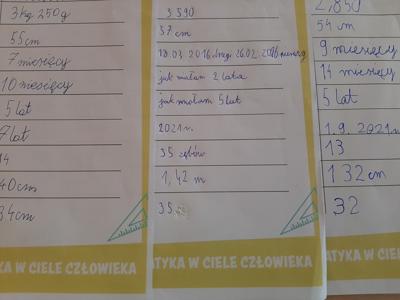 3 kg 250g
55cm
7 miesięcy
10 miesięcy
5 lat
7 lat
14
40cm
34cm
YKA W CIELE CZŁOWIEKA
3 590
57 cm
10.03. 2016 26.02. 2016
jak miałam 2 lata
jak miałam 5 lat
2021 r.
35 zębów
1,42 m
35
ATYKA W CIELE CZŁOWIEKA
2,850
54 cm
9 miesięcy
14 miesięcy
5 lat
1.9.2021r.
13
132 cm
32
ATYKA W CIELE CZŁOWIEKA